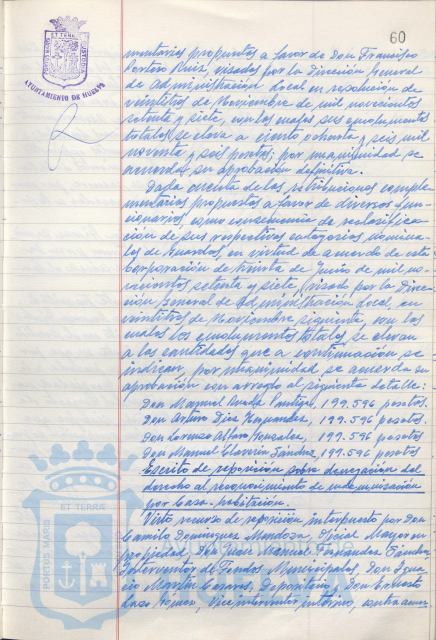 60
AYUNTAMIENTO DE HUELVA
mentarias propuestas a favor de Don Francisco
Portero Ruiz, visados por la Dirección General
de Administración Local en resolución de
veintitres de Noviembre de mil novecientos
setenta y siete, con los cuales sus emolumentos
totales se eleva a ciento ochenta y seis mil
noventa y seis pesetas; por unanimidad se
acuerda su aprobación definitiva.
Dada cuenta de las retribuciones comple-
mentarias propuestas a favor de diversos fun-
cionarios, como consecuencia de reclasifica-
ción de sus respectivas categorías nomina-
les de Guardas, en virtud de acuerdo de esta
Corporación de treinta de Junio de mil no-
vecientos setenta y siete, visado por la Direc-
ción General de Administración Local, en
veintitres de Noviembre siguiente, con los
cuales los emolumentos totales se elevan
a las cantidades que a continuación se
indican, por unanimidad se acuerda su
aprobación con arreglo al siguiente detalle:
Don Manuel 199.596 pesetas.
Don Arturo Díaz Hernandez, 199.596 pesetas.
Don Lorenzo Alfaro Gonzalez, 199.596 pesetas
Don Manuel Claverín Sández, 199.596 pesetas
Escrito de reposición sobre denegación del
derecho al requerimiento de indemnización
por Casa-habitación.
Visto recurso de reposición interpuesto por Don
Camilo Dominguez Mendoza, Oficial Mayor en
propiedad Don Juan Manuel Fernández Sánchez
Interventor de Fondos Municipales, Don Igna-
cio Martín Casares, Depositario y Don Ernesto
Viceinterventor interino, contra acuer-
PORTUS MARIS
ET TERRÆ